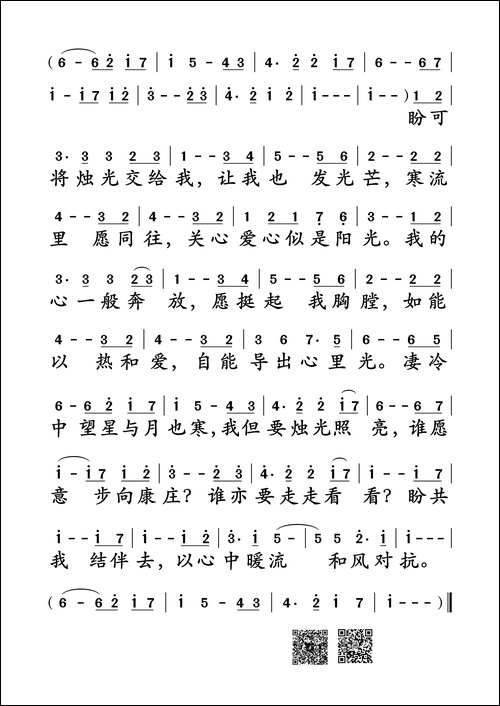 (6-6 2̇ i̇ 7 | i̇ 5-4 3 | 4· 2̇ 2̇ i̇ 7 | 6--6 7 |
i̇-i̇ 7 i̇ 2̇ | 3̇--2̇ 3̇ | 4̇· 2̇ i̇ 2̇ | i̇---| i̇---)1 2 |
盼可
3· 3 3 2 3 | 1--3 4 | 5--5 6 | 2--2 2 |
将烛光交给我，让我也 发光芒，寒流
4--3 2 | 4--3 2 | 1 2 1 7̣ 6̣ | 3--1 2 |
里 愿同往，关心爱心似是阳光。我的
3· 3 3 2 3 | 1--3 4 | 5--5 6 | 2--2 2 |
心一般奔 放，愿挺起 我胸膛，如能
4--3 2 | 4--3 2 | 3 6 7· 5 | 6--6 5 |
以 热和爱，自能导出心里光。凄冷
6-6 2̇ i̇ 7 | i̇ 5-4 3 | 4· 2̇ 2̇ i̇ 7 | 6--6 7 |
中望星与月也寒，我但要烛光照 亮，谁愿
i̇-i̇ 7 i̇ 2̇ | 3̇--2̇ 3̇ | 4̇· 2̇ 2̇ i̇ 7 | i̇--i̇ 2̇ |
意 步向康庄？谁亦要走走看 看？盼共
i̇--i̇ 7 | i̇--i̇ 2̇ | 3̇· i̇ 5-| 5 5 2̇· i̇ | i̇---|
我 结伴去，以心中暖流 和风对抗。
(6-6 2̇ i̇ 7 | i̇ 5-4 3 | 4· 2̇ i̇ 7 | i̇---)‖